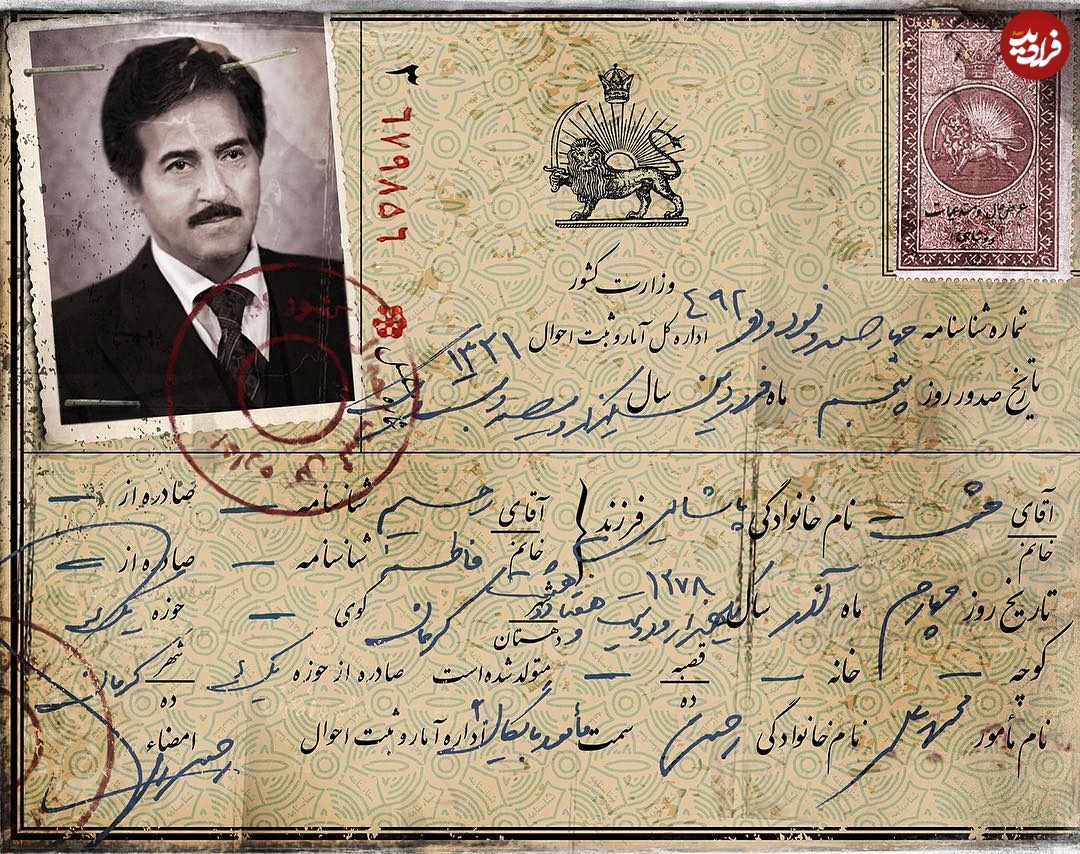 فرادید
وزارت کشور
اداره کل آمار و ثبت احوال
شماره شناسنامه چهارصد و نود و دو ۴۹۲
تاریخ صدور روز پنجم ماه فروردین سال یکهزار و سیصد و بیست و یک ۱۳۲۱
آقای نام خانوادگی پاشایی فرزند آقای رحیم شناسنامه — صادره از —
خانم خانم فاطمه شناسنامه — صادره از —
تاریخ روز چهارم ماه آذر سال ۱۲۷۸ شهر کرمان کوی — حوزه یک
دهستان
کوچه — خانه — قصبه — متولد شده است صادره از حوزه یک شهر کرمان
ده ده
نام مأمور محمدعلی نام خانوادگی سمت مأمور بایگانی اداره آمار و ثبت احوال امضاء